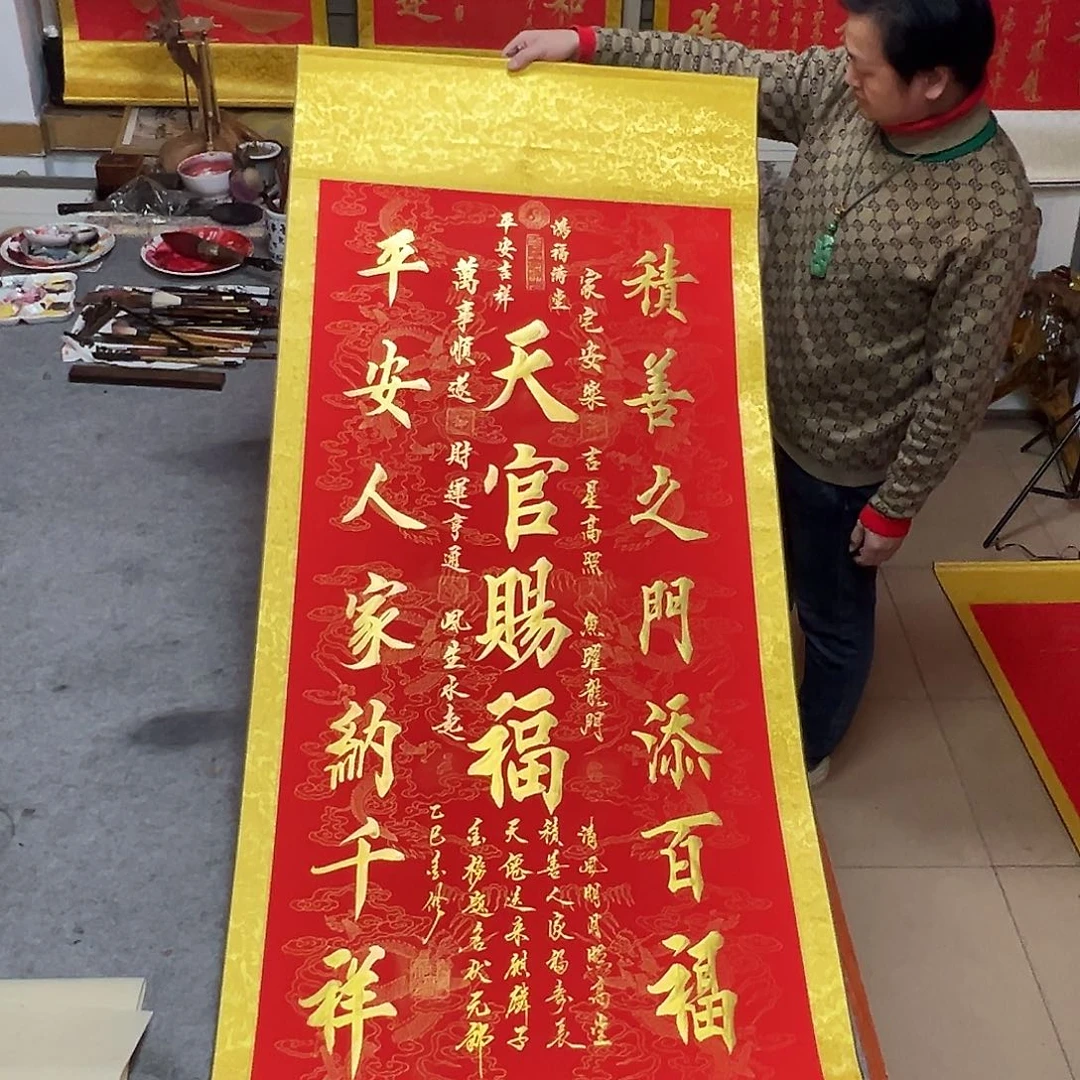 積善之門添百福
鴻福滿堂
家宅安樂
吉星高照
魚躍龍門
天官賜福
平安吉祥
萬事順遂
財運亨通
風生水起
平安人家納千祥
清風明月照高堂
積善人家福壽長
天儒送來麒麟子
金榜題名狀元郎